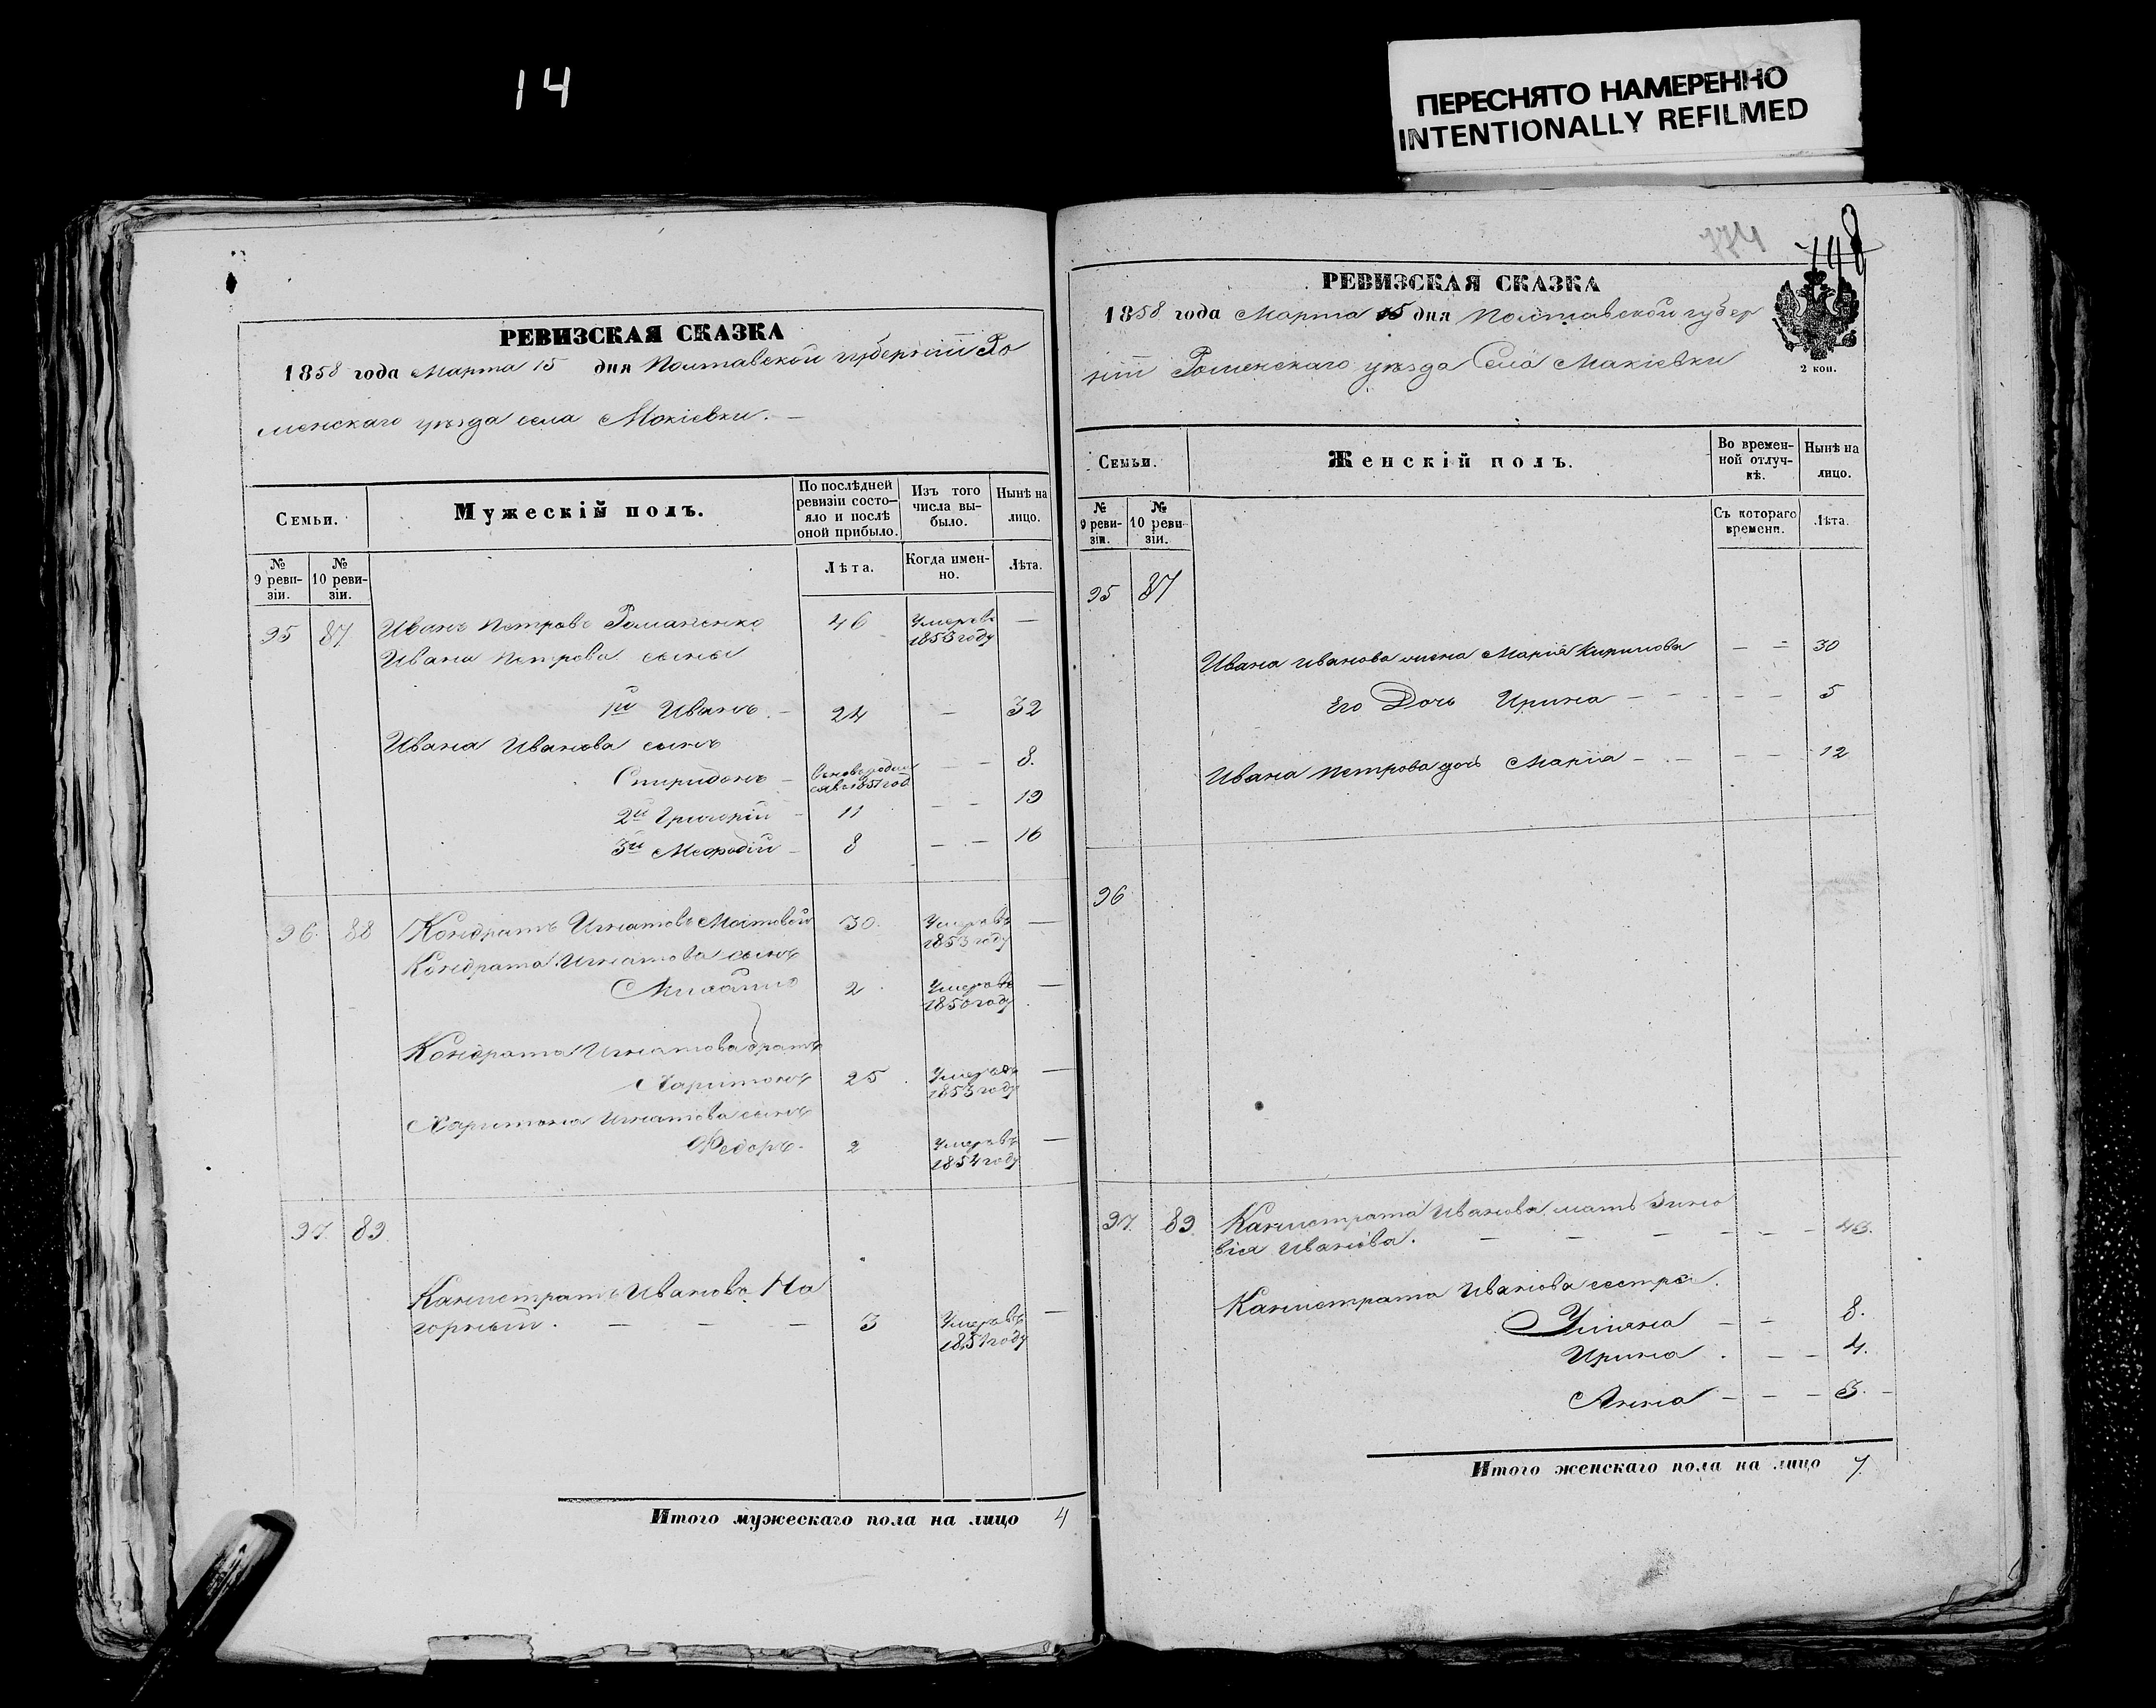 14
ПЕРЕСНЯТО НАМЕРЕННО
INTENTIONALLY REFILMED
РЕВИЗСКАЯ СКАЗКА
1858 года Марта 15 дня Полтавской губерніи Ро
менскаго уѣзда села Мокіевки. —
Семьи.
Мужескій полъ.
По послѣдней
ревизіи состо-
яло и послѣ
оной прибыло.
Изъ того
числа вы-
было.
Нынѣ на
лицо.
№
9 реви-
зіи.
№
10 реви-
зіи.
Лѣта.
Когда имен-
но.
Лѣта.
95 87 Иванъ Петровъ Романенко 46 Умеръ въ 1853 году —
Ивана Петрова сыны
1й Иванъ. — 24 — 32
Ивана Иванова сынъ
Спиридонъ — — — 8.
2й Григорій — 11 — — 19
3й Мефодій — 8 — — 16
96. 88 Кондратъ Игнатовъ Мостовой 30. Умеръ въ 1853 году —
Кондрата Игнатова сынъ
Михаилъ 2 Умеръ въ 1850 году —
Кондрата Игнатова братъ
Харитонъ 25 Умеръ въ 1853 году —
Харитона Игнатова сынъ
Федоръ. 2 Умеръ въ 1854 году —
97. 89.
Калистратъ Ивановъ На
горный. — — — 3 Умеръ въ 1851 году —
Итого мужескаго пола на лицо 4
774
748
РЕВИЗСКАЯ СКАЗКА
1858 года Марта 15 дня Полтавской губер
ніи Роменскаго уѣзда Села Мокіевки
2 коп.
Семьи.
Женскій полъ.
Во времен-
ной отлуч-
кѣ.
Нынѣ на
лицо.
№
9 реви-
зіи.
№
10 реви-
зіи.
Съ котораго
времени.
Лѣта.
95 87
Ивана Иванова жена Марія Кирилова — — 30
Его Дочь Ирина — — — — 5
Ивана Петрова дочь Марія — — — — 12
96
97. 89. Калистрата Иванова мать Зино
вія Иванова. — — — — — —
Калистрата Иванова сестра.
Ульяна — — 8.
Ирина . — — 4.
Анна — — — 3. —
Итого женскаго пола на лицо 7.